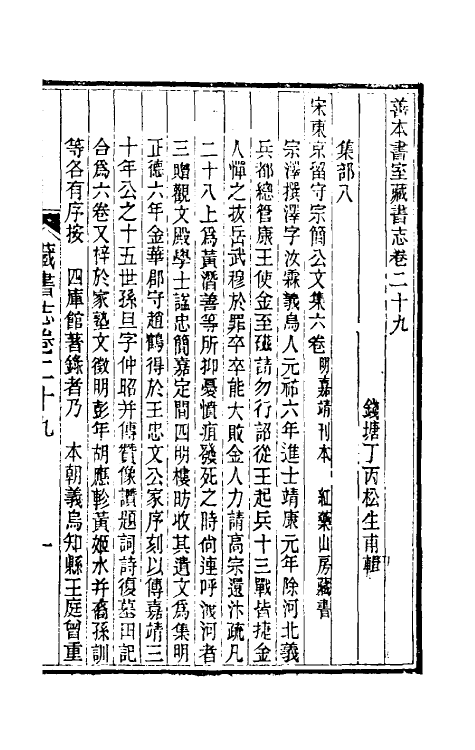 善本書室藏書志卷二十九
錢塘丁丙松生甫輯
集部八
宋東京留守宗簡公文集六卷 明嘉靖刊本 紅藥山房藏書
宗澤撰澤字汝霖義烏人元祐六年進士靖康元年除河北義
兵都總管康王使金至磁請勿行詔從王起兵十三戰皆捷金
人憚之拔岳武穆於罪卒卒能大敗金人力請高宗還汴疏凡
二十八上爲黃潛善等所抑憂憤疽發死之時尙連呼渡河者
三贈觀文殿學士諡忠簡嘉定間四明樓昉收其遺文爲集明
正德六年金華郡守趙鶴得於王忠文公家序刻以傳嘉靖三
十年公之十五世孫旦字仲昭幷傳贊像讚題詞詩復墓田記
合爲六卷又梓於家塾文徵明彭年胡應軫黃姬水幷裔孫訓
等各有序按 四庫館著錄者乃 本朝義烏知縣王庭曾重
藏書志卷二十九 一